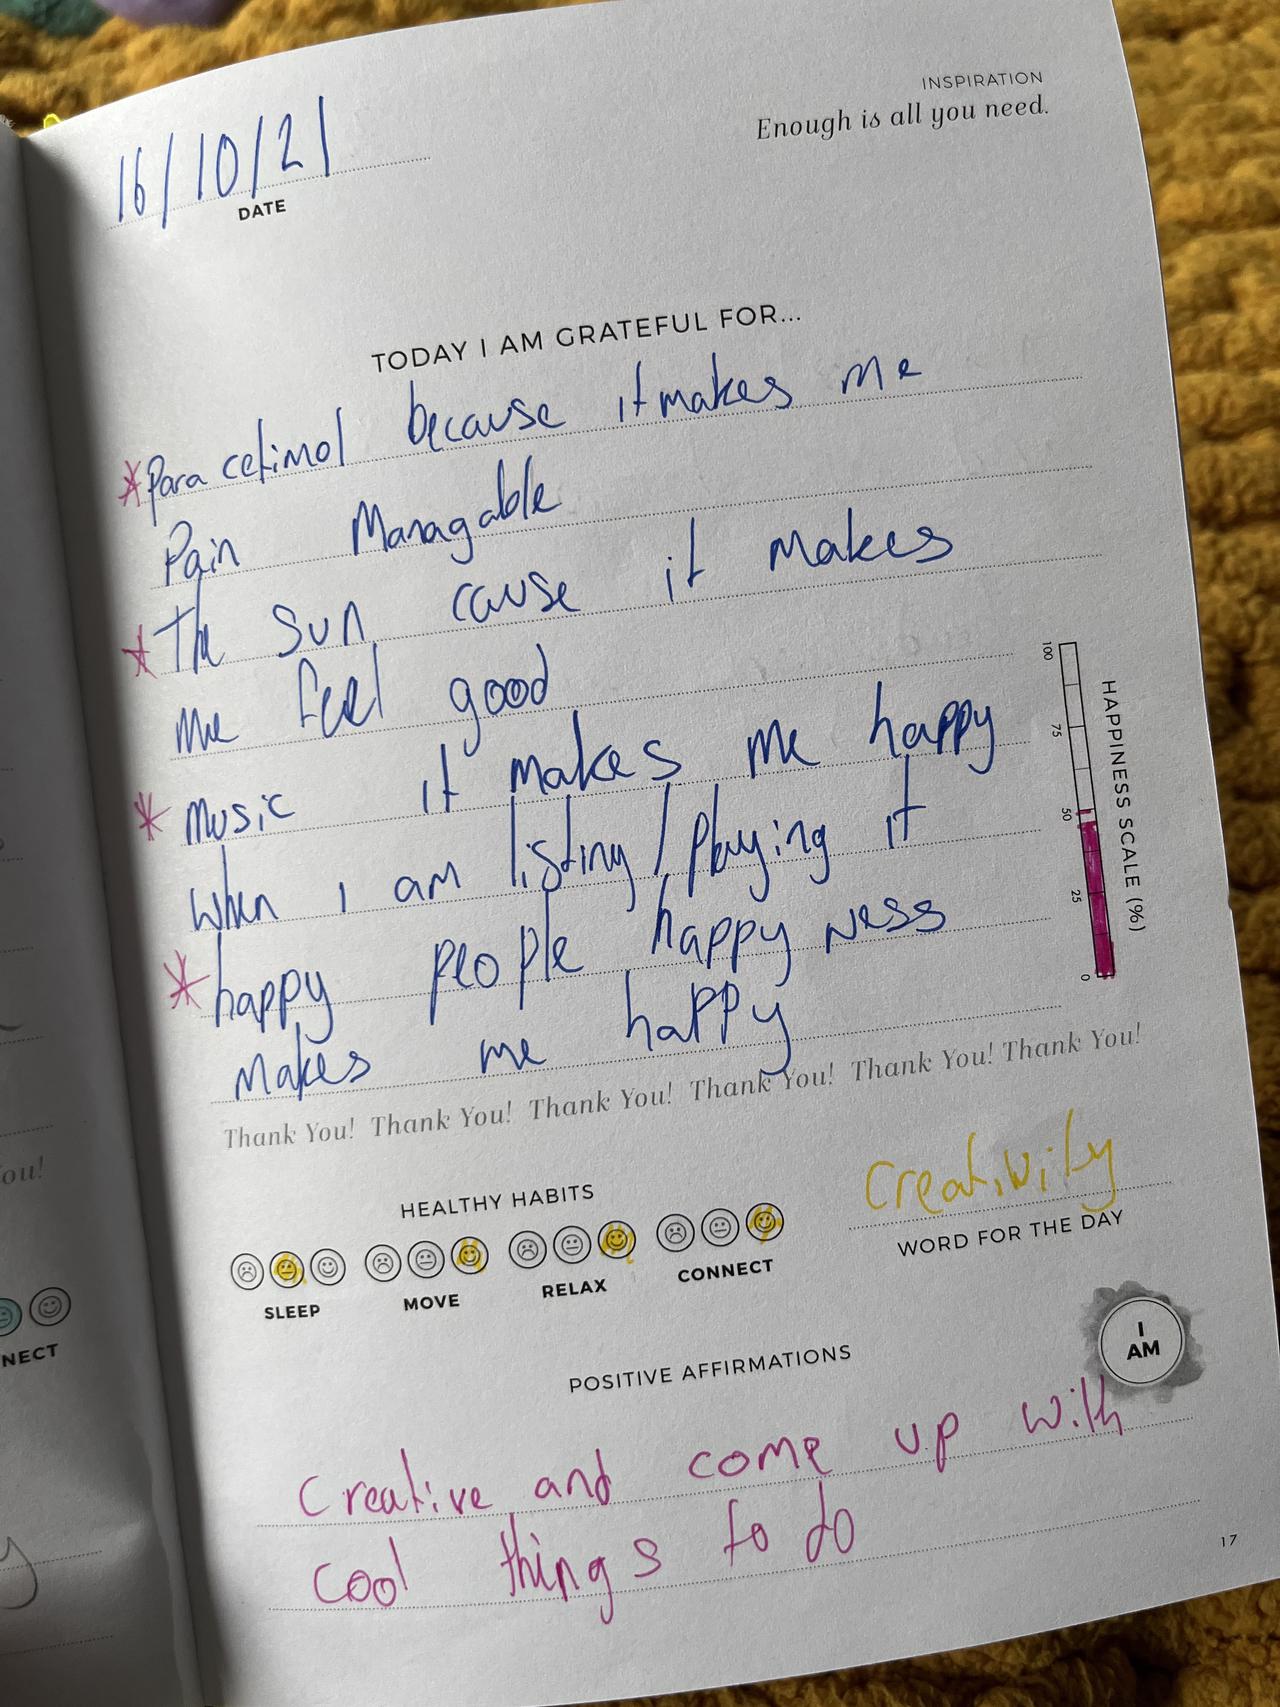 INSPIRATION
Enough is all you need.
16/10/21
DATE
TODAY I AM GRATEFUL FOR...
*Paracetimol because it makes me
Pain Managable
*The Sun cause it makes
me feel good
*Music it makes me happy
When I am listing/playing it
*happy people happyness
Makes me happy
100
75
50
25
0
HAPPINESS SCALE (%)
Thank You! Thank You! Thank You! Thank You! Thank You! Thank You!
HEALTHY HABITS
SLEEP MOVE RELAX CONNECT
Creativity
WORD FOR THE DAY
POSITIVE AFFIRMATIONS
I
AM
Creative and come up with
cool things to do
17
ou!
NECT